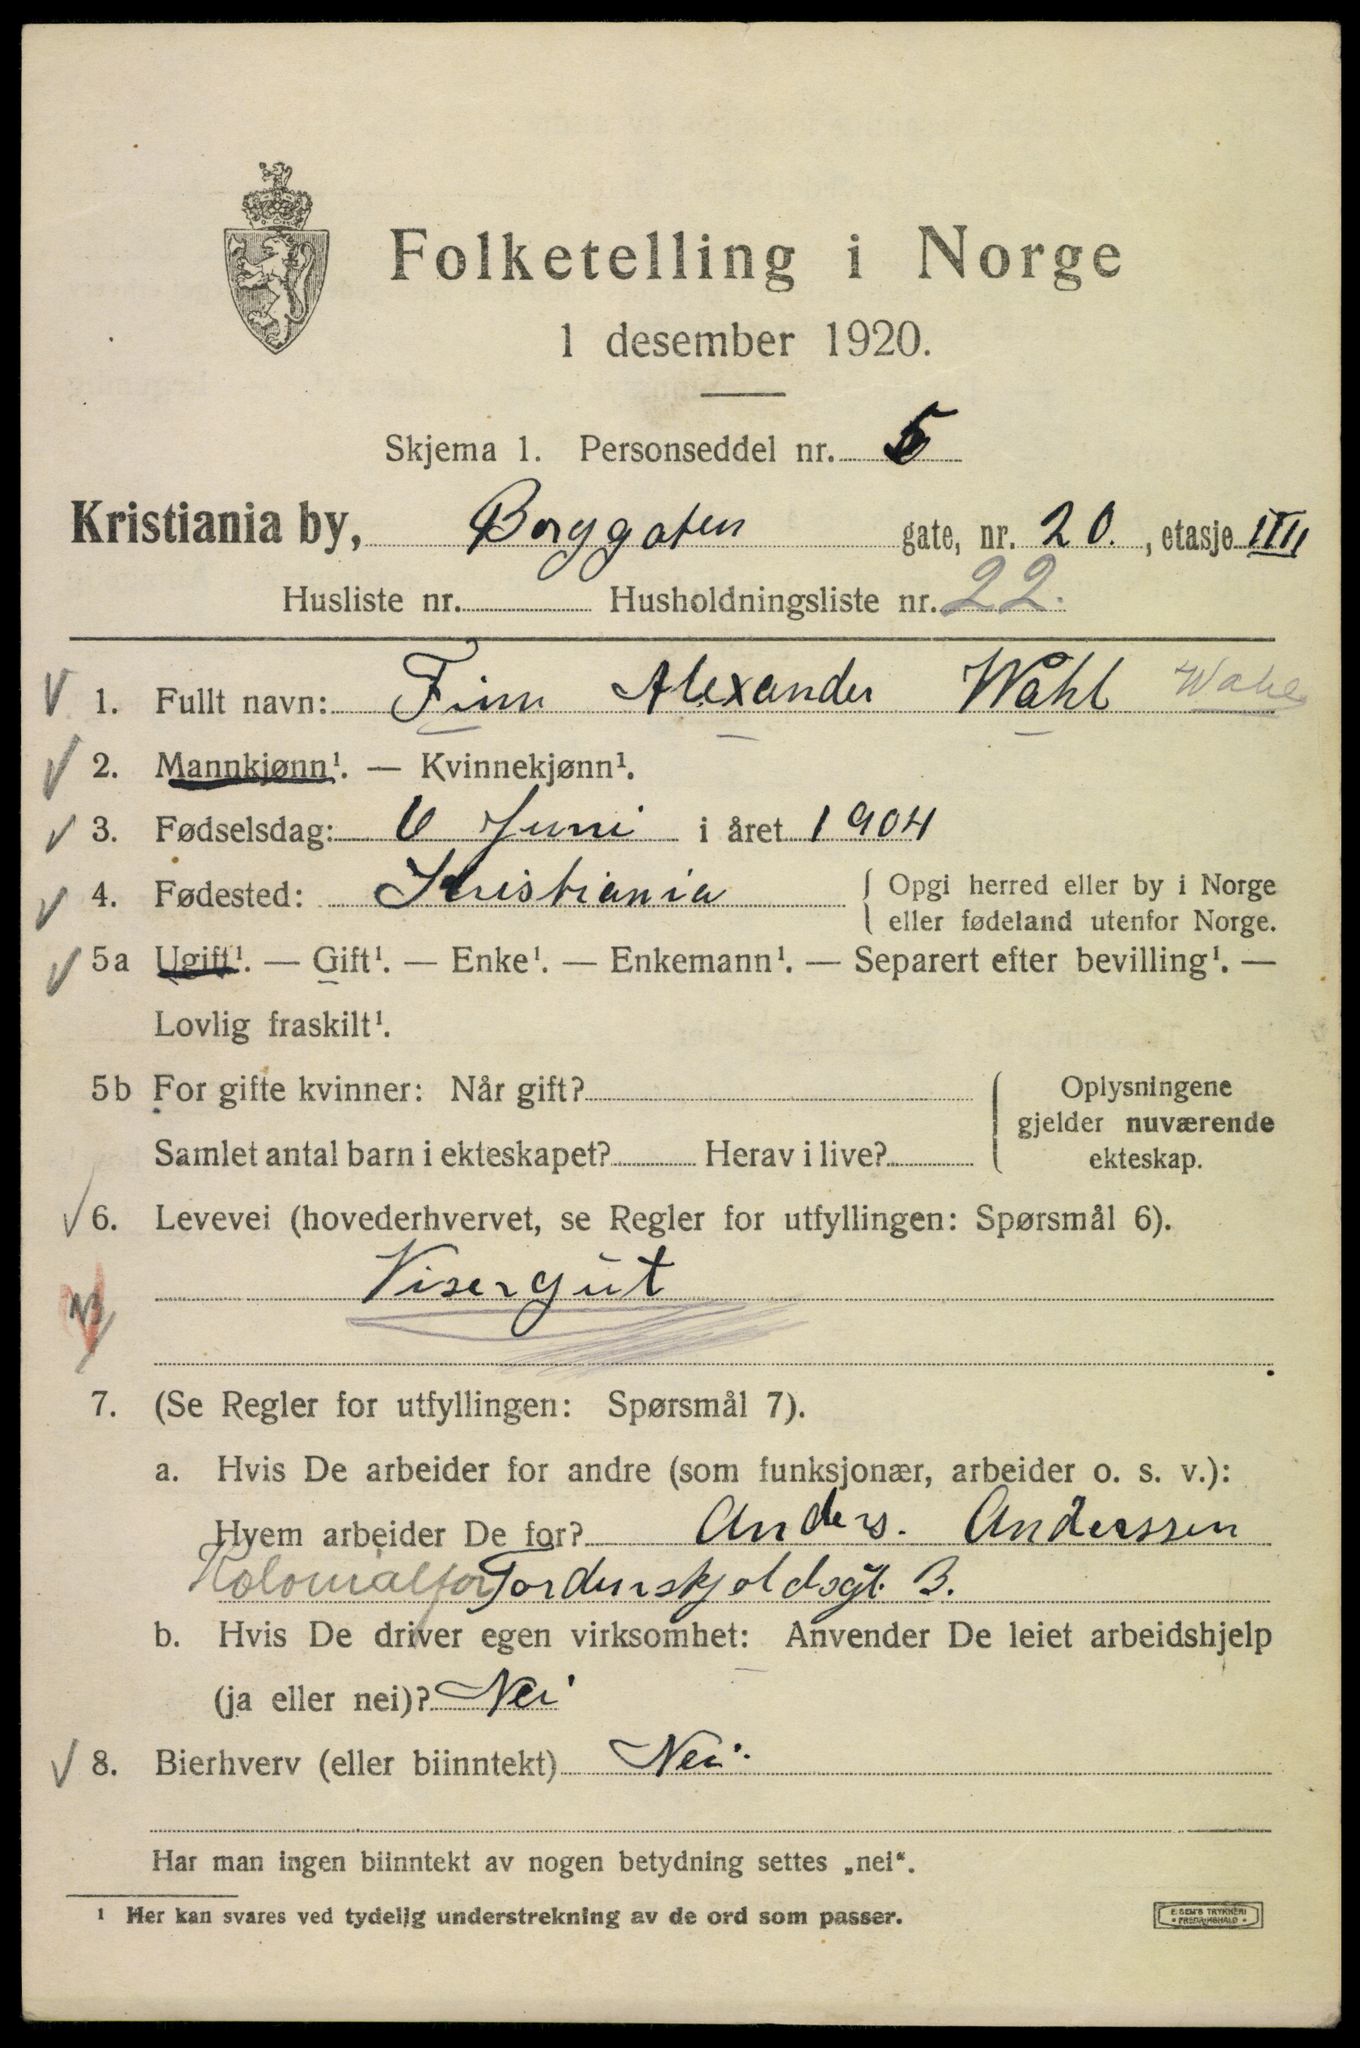 Folketelling i Norge
1 desember 1920.
Skjema 1. Personseddel nr. 5
Kristiania by, Borggaten gate, nr. 20. , etasje IIII
Husliste nr. Husholdningsliste nr. 22.
1. Fullt navn: Finn Alexander Wåhl Wahl
2. Mannkjønn¹. — Kvinnekjønn¹.
3. Fødselsdag: 6 Juni i året 1904
4. Fødested: Kristiania { Opgi herred eller by i Norge
eller fødeland utenfor Norge.
5a Ugift¹. — Gift¹. — Enke¹. — Enkemann¹. — Separert efter bevilling¹. —
Lovlig fraskilt¹.
5b For gifte kvinner: Når gift? { Oplysningene
gjelder nuværende
Samlet antal barn i ekteskapet? Herav i live? ekteskap.
6. Levevei (hovederhvervet, se Regler for utfyllingen: Spørsmål 6).
Visergut
7. (Se Regler for utfyllingen: Spørsmål 7).
a. Hvis De arbeider for andre (som funksjonær, arbeider o. s. v.):
Hvem arbeider De for? Anders. Anderssen
Kolonialfor Tordenskjoldsgt. 3.
b. Hvis De driver egen virksomhet: Anvender De leiet arbeidshjelp
(ja eller nei)? Nei
8. Bierhverv (eller biinntekt) Nei.
Har man ingen biinntekt av nogen betydning settes „nei“.
¹ Her kan svares ved tydelig understrekning av de ord som passer.
E. SEM'S TRYKKERI
FREDRIKSHALD